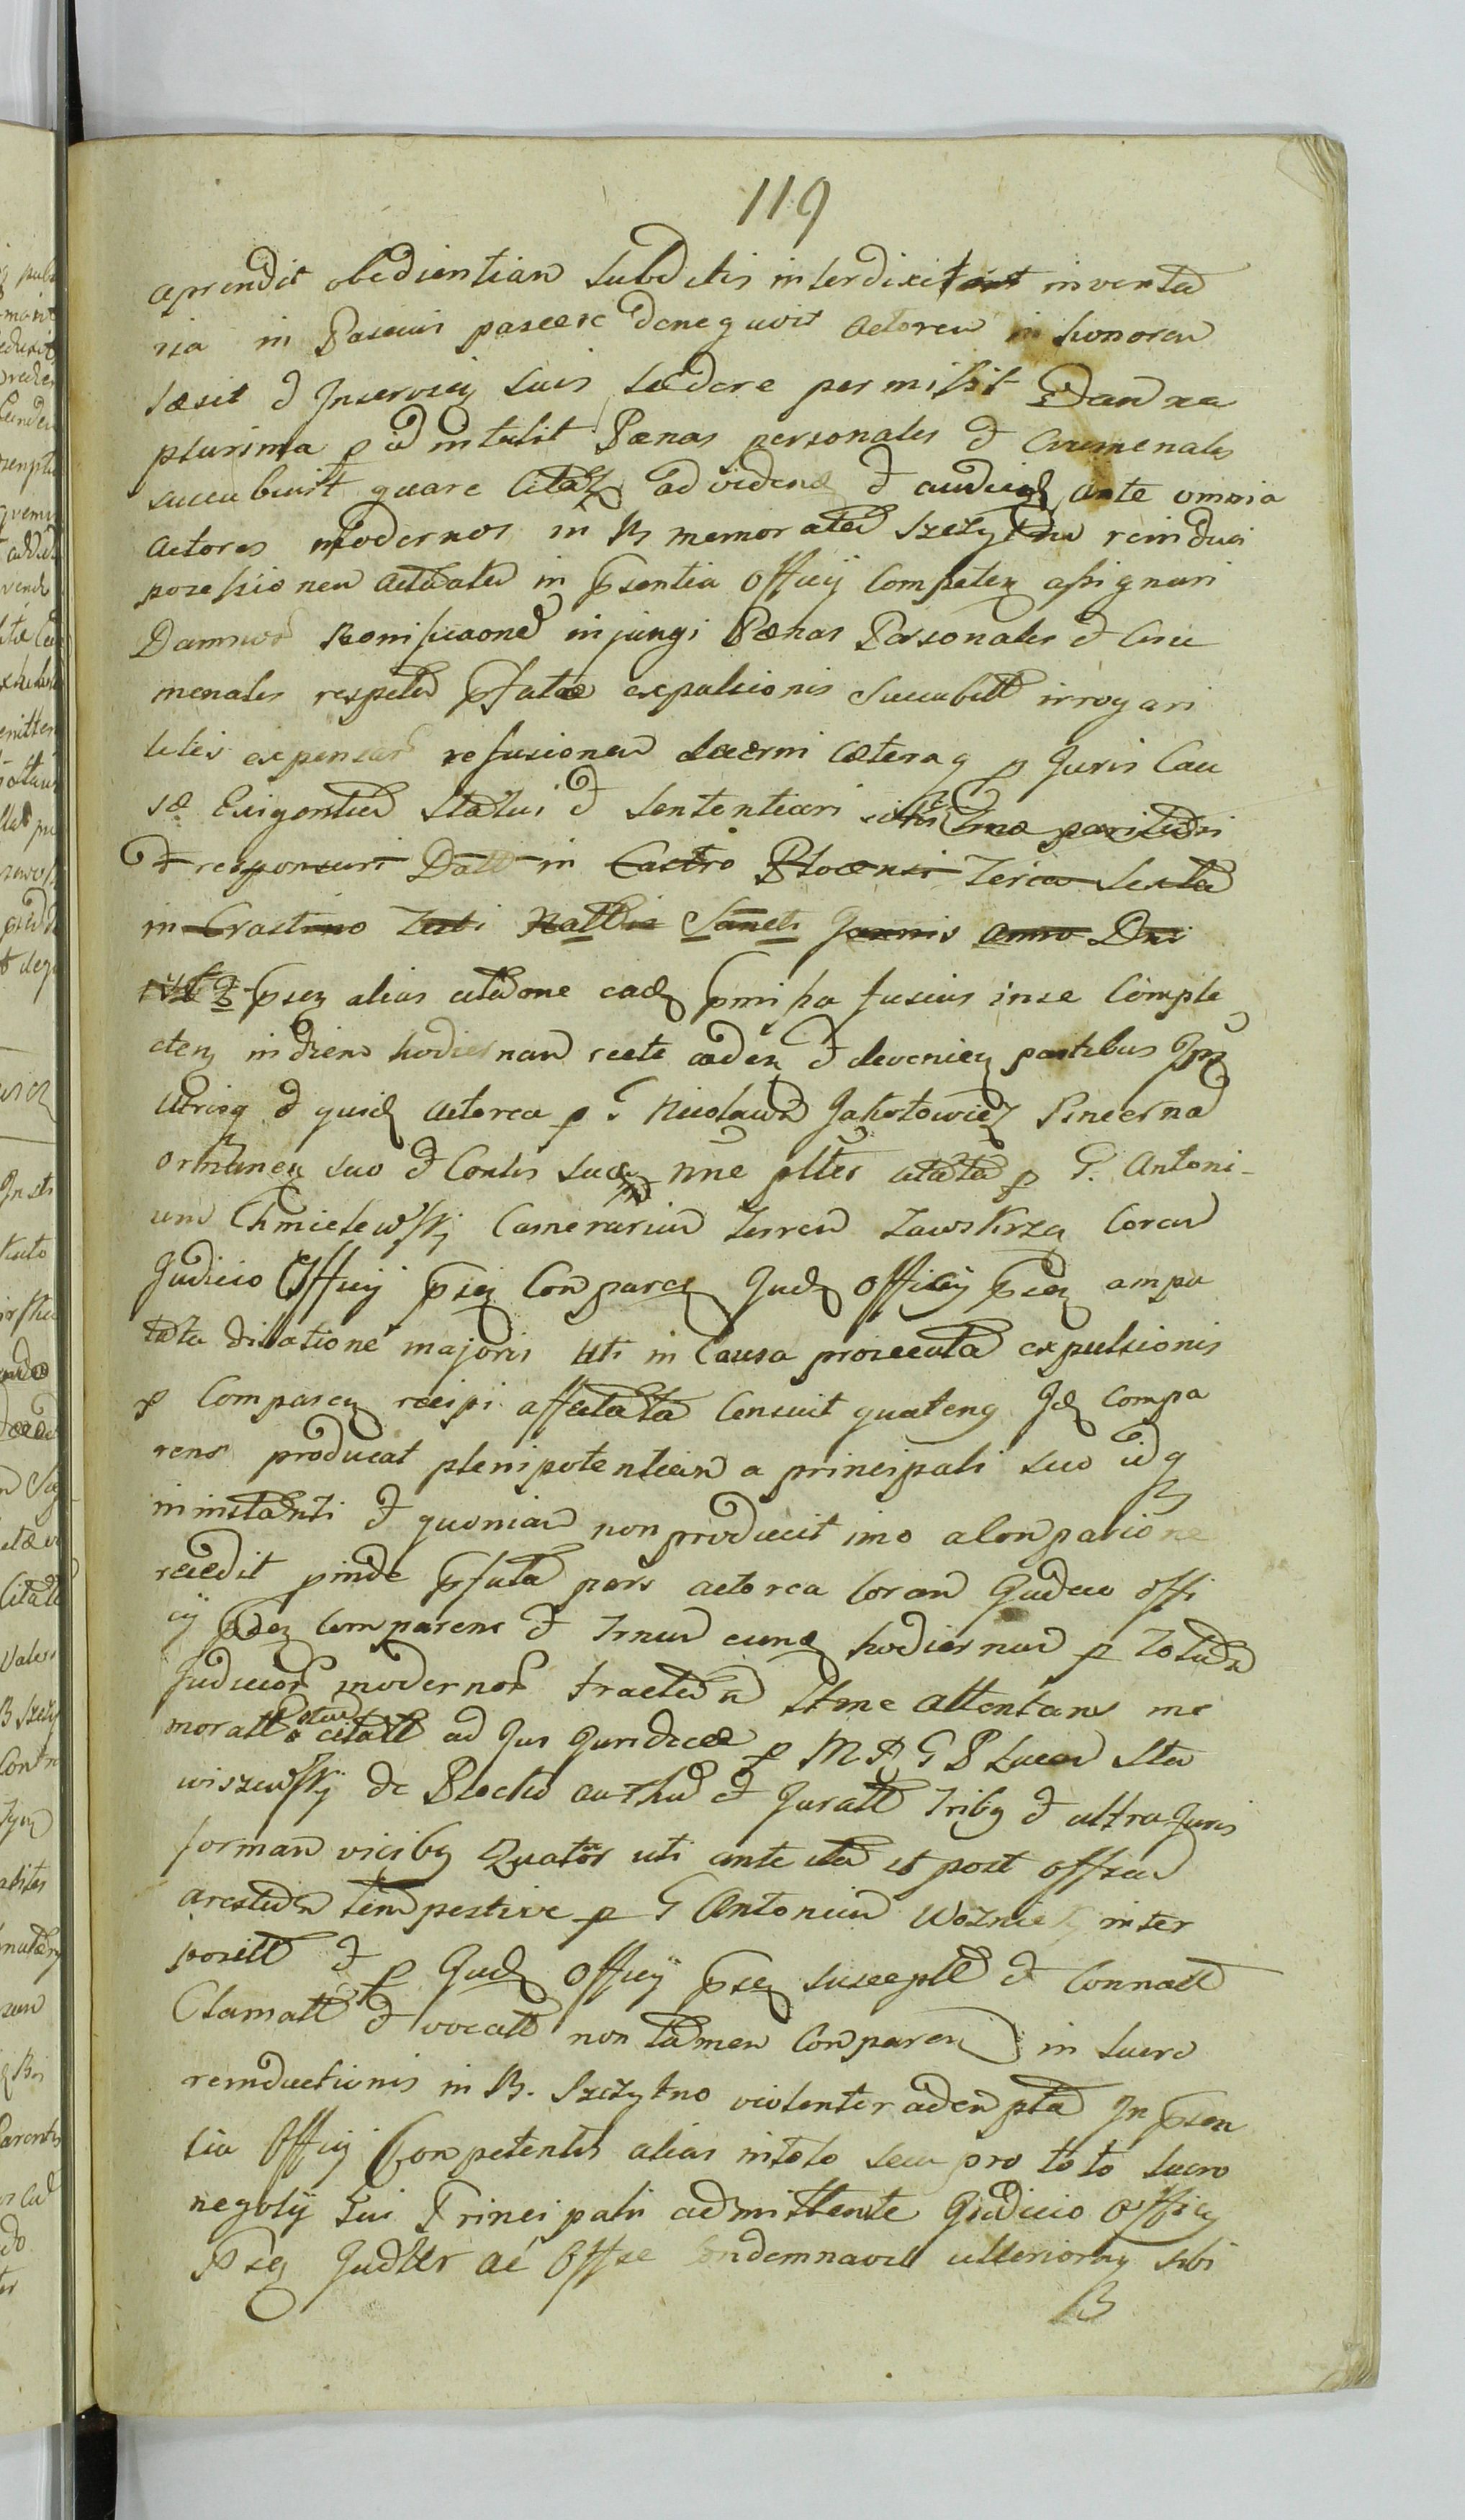 119
aprendit obedientiam subditis interdixit inventa
ria in Pascuis pascere denegavit Actorem in honorem
læsit & Inservien suis lædere permisit Damna
plurima p id intulit Pænas personales & Crimenales
succubuit quare Citatq ad videnđ & audienđ ante omnia
Actores modernos in B memorata Szczytno reinduci
possessionem Actualem in psentia Officij Competen assignari
Damnor Bonificaonem injungi Pænas Personales & Crui
menales respectu pfatæ expulsionis Succubitt irrogari
litis expensar refusionem decerni cæteraq p Juris Cau
sæ Exigentia Statui & Sententiari sitis Tmæ parituri
& responsuri Datt in Castro Plocensi Feria Sexta
in Crastino Festi Natttis Sancti Joannis Anno Dni
psen alias citaone eađ pmissa fusius in se Comple
cten in diem hodiernam recte caden & devenien partibus Ipsis
utrisq & quiđ Actorea p G Nicolaum Jakotowicz Pincerna
suo & Consis suæ nne plter citata p G. Antoni-
um Chmielewski Camerarium Terren Zawskrzen Coram
Judicio Officij psen Comparen Juđ Officij psen ampu
tata dilatione majoris uti in Causa prosecuta expulsionis
p Comparen recipi affectata Censuit quatenq Iđ Compa
rens producat plenipotentiam a principali suo idq
in instanti & quoniam non produxit imo a Comparione
recedit pinde pfata pars actorea Coram Judicio Offi
cij psen Comparens & Trnum eunđ hodiernum p Totum
Judicior modernor tractum Ittme attentans me
moratt Citatt ad Jus Juridice p M R G P Lucam Sta
wiszewski de Plocko authen & Juratt Tribq & ultra Juris
formam vicibq Quator uti ante ita et post Offsæ
arestum tempestive p G Antonium Woznicki inter
positt & p Juđ Officij psen susceptt & Connatt
Clamatt & vocatt non tamen Comparen in lucro
reinductionis in B. Szczytno violenter adempta In psen
tia Officij Competentis alias in toto seu pro toto lucro
negotij sui Principalis admittente Judicio Officij
Psen Judttr ac Offse Condemnavit ulteriorq sibi